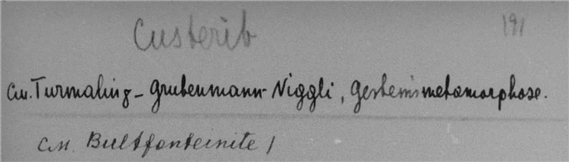 Custerib
191
См. Turmaling – Grubenmann-Niggli, Gesteinsmetamorphose.
См. Bultfonteinite /